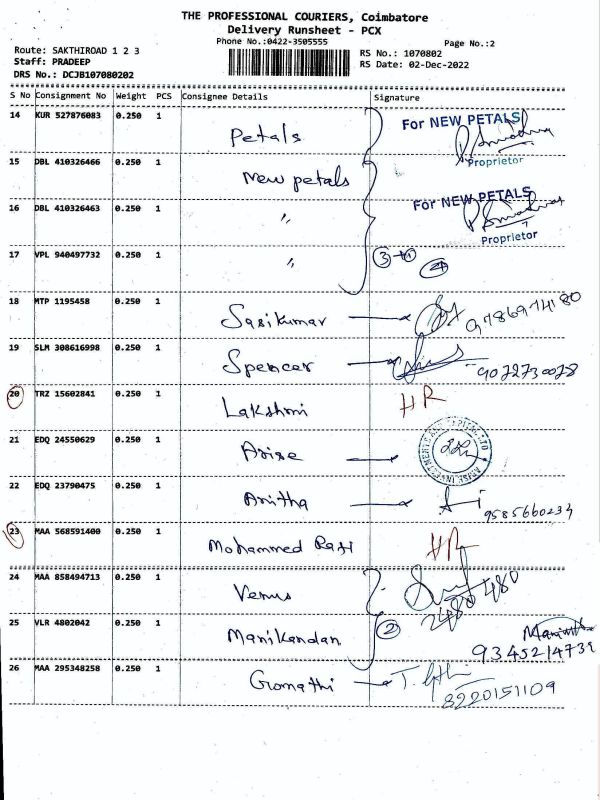 THE PROFESSIONAL COURIERS, Coimbatore
Delivery Runsheet - PCX
Phone No.:0422-3505555
Page No.:2
Route: SAKTHIROAD 1 2 3
RS No.: 1070802
Staff: PRADEEP
RS Date: 02-Dec-2022
DRS No.: DCJB107080202
S No Consignment No Weight PCS Consignee Details Signature
14 KUR 527876083 0.250 1 Petals For NEW PETALS
Proprietor
15 DBL 410326466 0.250 1 New petals
16 DBL 410326463 0.250 1 " For NEW PETALS
Proprietor
17 VPL 940497732 0.250 1 " 3 +1
4
18 MTP 1195458 0.250 1 Sasikumar 9786974180
19 SLM 308616998 0.250 1 Spencer 9072730078
20 TRZ 15602841 0.250 1 Lakshmi HR
21 EDQ 24550629 0.250 1 Arise
22 EDQ 23790475 0.250 1 Anitha 9585660234
23 MAA 568591400 0.250 1 Mohammed Rafi HR
24 MAA 858494713 0.250 1 Venus 2480480
25 VLR 4802042 0.250 1 Manikandan 2
9345214739
26 MAA 295348258 0.250 1 Gomathi
8220151109